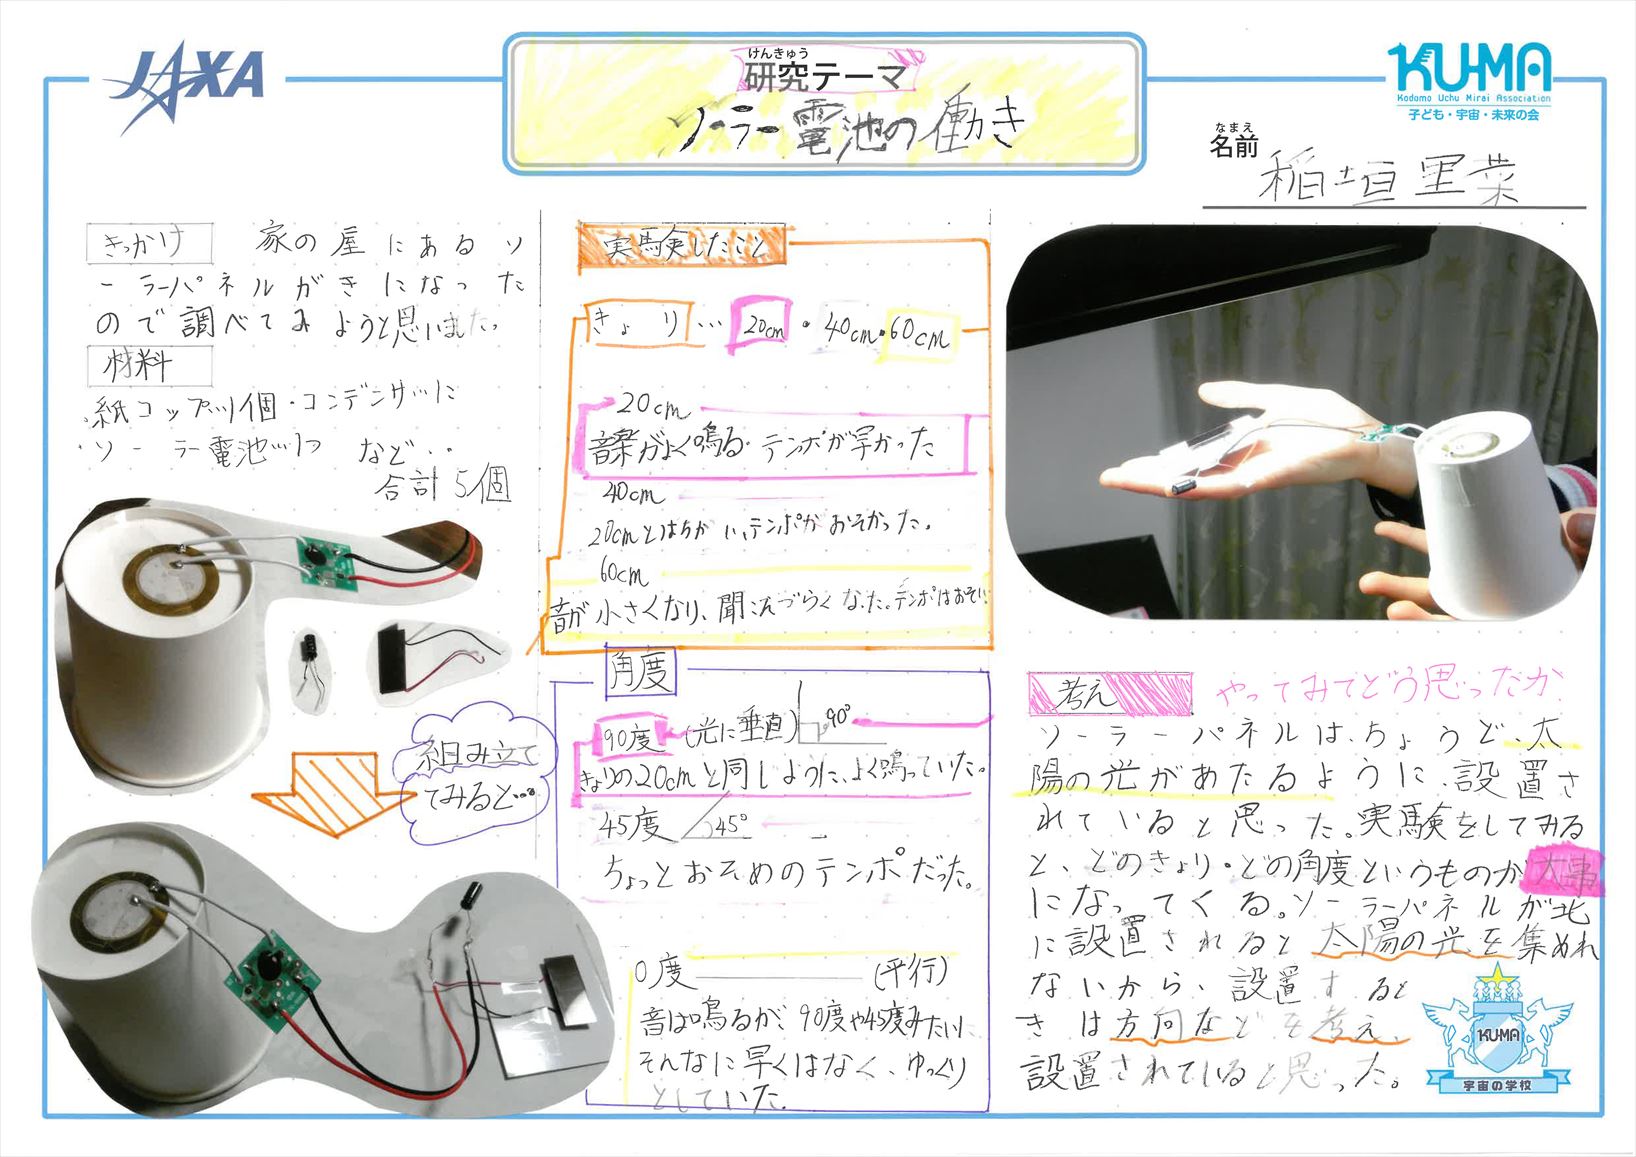 JAXA
けんきゅう
研究テーマ
ソーラー電池の働き
KU-MA
Kodomo Uchu Mirai Association
子ども・宇宙・未来の会
なまえ
名前 稲垣里菜
きっかけ 家の屋にあるソ
ーラーパネルがきになった
ので調べてみようと思いました。
材料
・紙コップ…1個・コンデンサ…1こ
・ソーラー電池…1つ など…
合計5個
組み立て
てみると…
実験したこと
きょり…20cm・40cm・60cm
20cm
音楽がよく鳴る・テンポが早かった
40cm
20cmとはちがい、テンポがおそかった。
60cm
音が小さくなり、聞こえづらくなった。テンポはおそい
角度
90度(光に垂直) 90°
きょりの20cmと同じように、よく鳴っていた。
45度 45°
ちょっとおそめのテンポだった。
0度 (平行)
音は鳴るが、90度や45度みたいに
そんなに早くはなく、ゆっくり
としていた。
考え やってみてどう思ったか
ソーラーパネルは、ちょうど、太
陽の光があたるように、設置さ
れていると思った。実験をしてみる
と、どのきょり・どの角度というものが大事
になってくる。ソーラーパネルが北
に設置されると太陽の光を集めれ
ないから、設置すると
きは方向などを考え、
設置されていると思った。
KU-MA
宇宙の学校